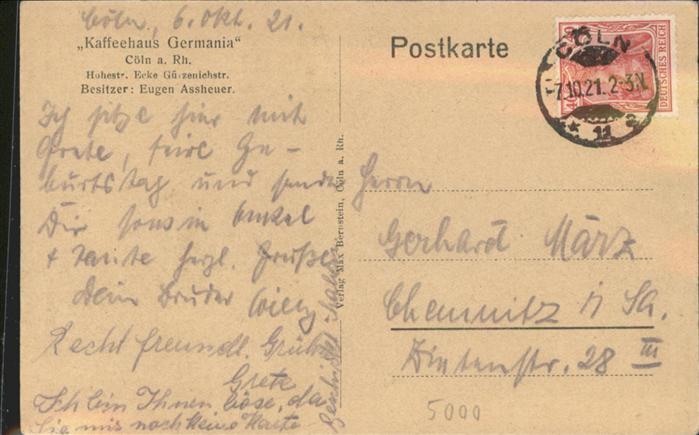 Cöln, 6. Okt. 21.
„Kaffeehaus Germania“
Cöln a. Rh.
Hohestr. Ecke Gürzenichstr.
Besitzer: Eugen Assheuer.
Ich sitze hier mit
Grete, feire Ge-
burtstag und sende
Dir sowie Onkel
+ Tante herzl. Grüße
Dein Bruder Willy
Recht freundl. Grüße
Grete
Ich bin Ihnen böse, da
Sie mir noch keine Karte
Verlag Max Bernstein, Cöln a. Rh.
Postkarte
DEUTSCHES REICH
40
CÖLN
7.10.21. 2-3.N.
* 11 a
Herrn
Gerhard März
Chemnitz i/ Sa.
28 III
5000